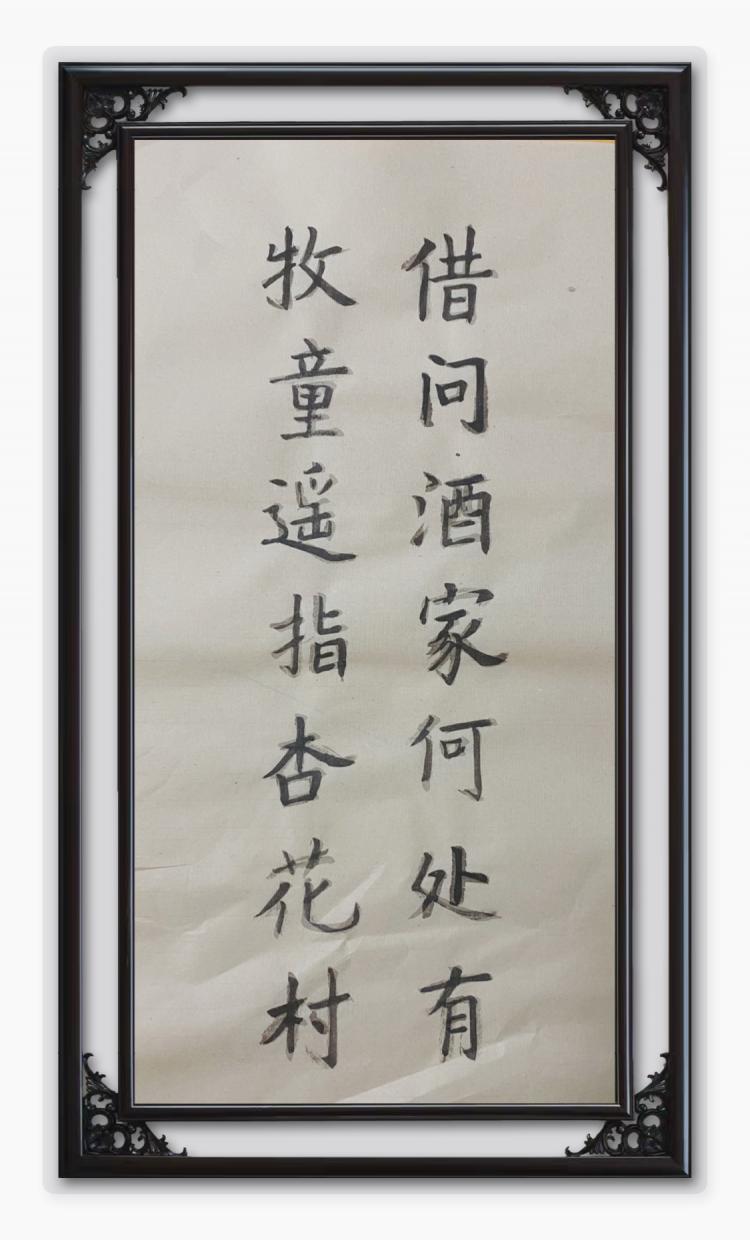 借问酒家何处有
牧童遥指杏花村